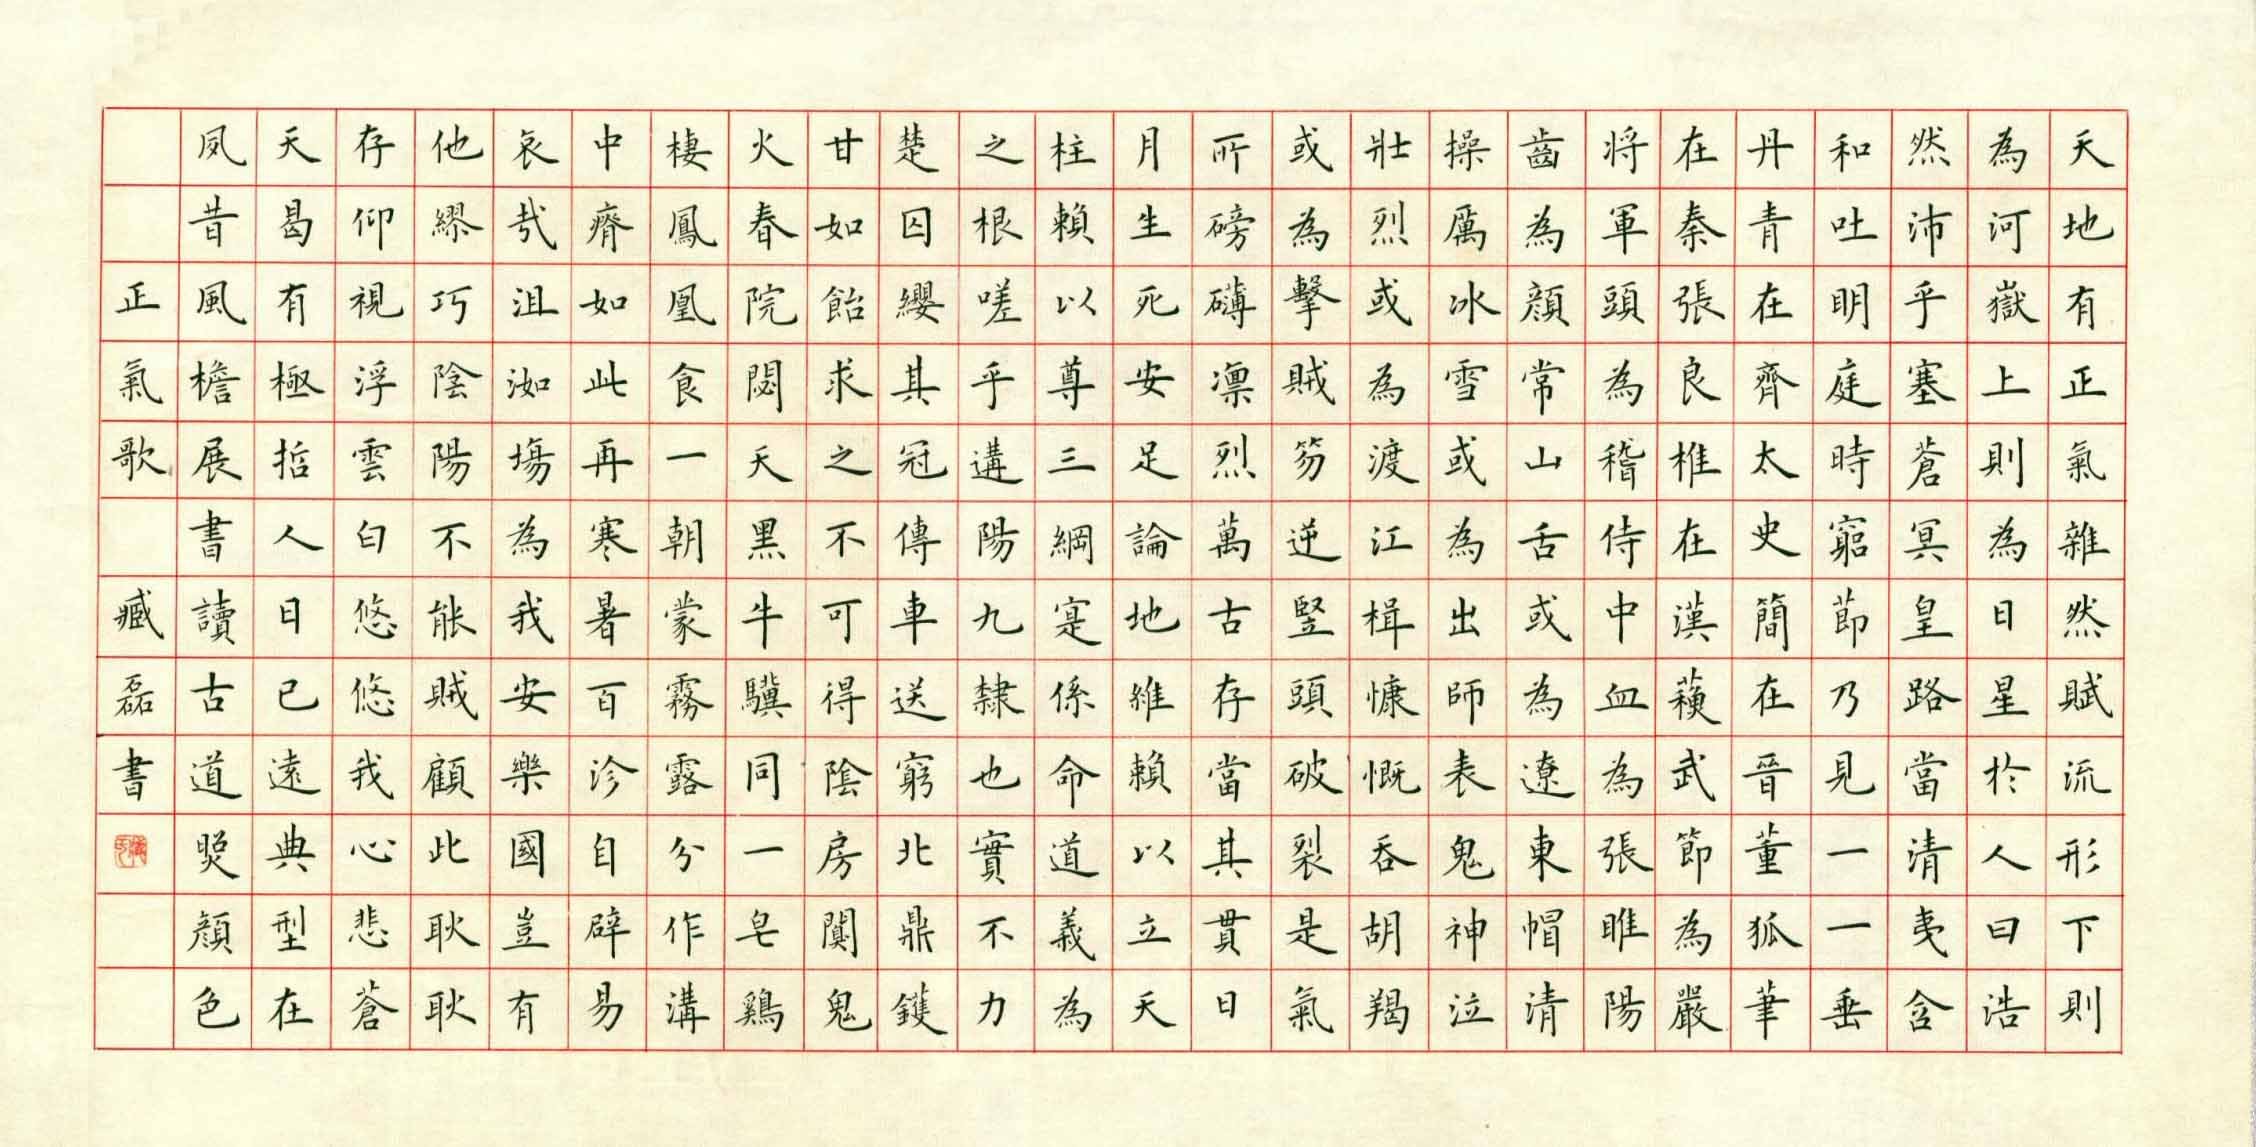 天地有正氣雜然賦流形下則
為河嶽上則為日星於人曰浩
然沛乎塞蒼冥皇路當清夷含
和吐明庭時窮節乃見一一垂
丹青在齊太史簡在晉董狐筆
在秦張良椎在漢蘇武節為嚴
将軍頭為稽侍中血為張睢陽
齒為顏常山舌或為遼東帽清
操厲冰雪或為出師表鬼神泣
壯烈或為渡江楫慷慨吞胡羯
或為擊賊笏逆豎頭破裂是氣
所磅礴凛烈萬古存當其貫日
月生死安足論地維賴以立天
柱賴以尊三綱寔係命道義為
之根嗟乎遘陽九隸也實不力
楚囚纓其冠傳車送窮北鼎鑊
甘如飴求之不可得陰房闃鬼
火春院閟天黑牛驥同一皂鷄
棲鳳凰食一朝蒙霧露分作溝
中瘠如此再寒暑百沴自辟易
哀哉沮洳場為我安樂國豈有
他繆巧陰陽不能賊顧此耿耿
存仰視浮雲白悠悠我心悲蒼
天曷有極哲人日已遠典型在
夙昔風檐展書讀古道照顏色
正氣歌 臧磊書